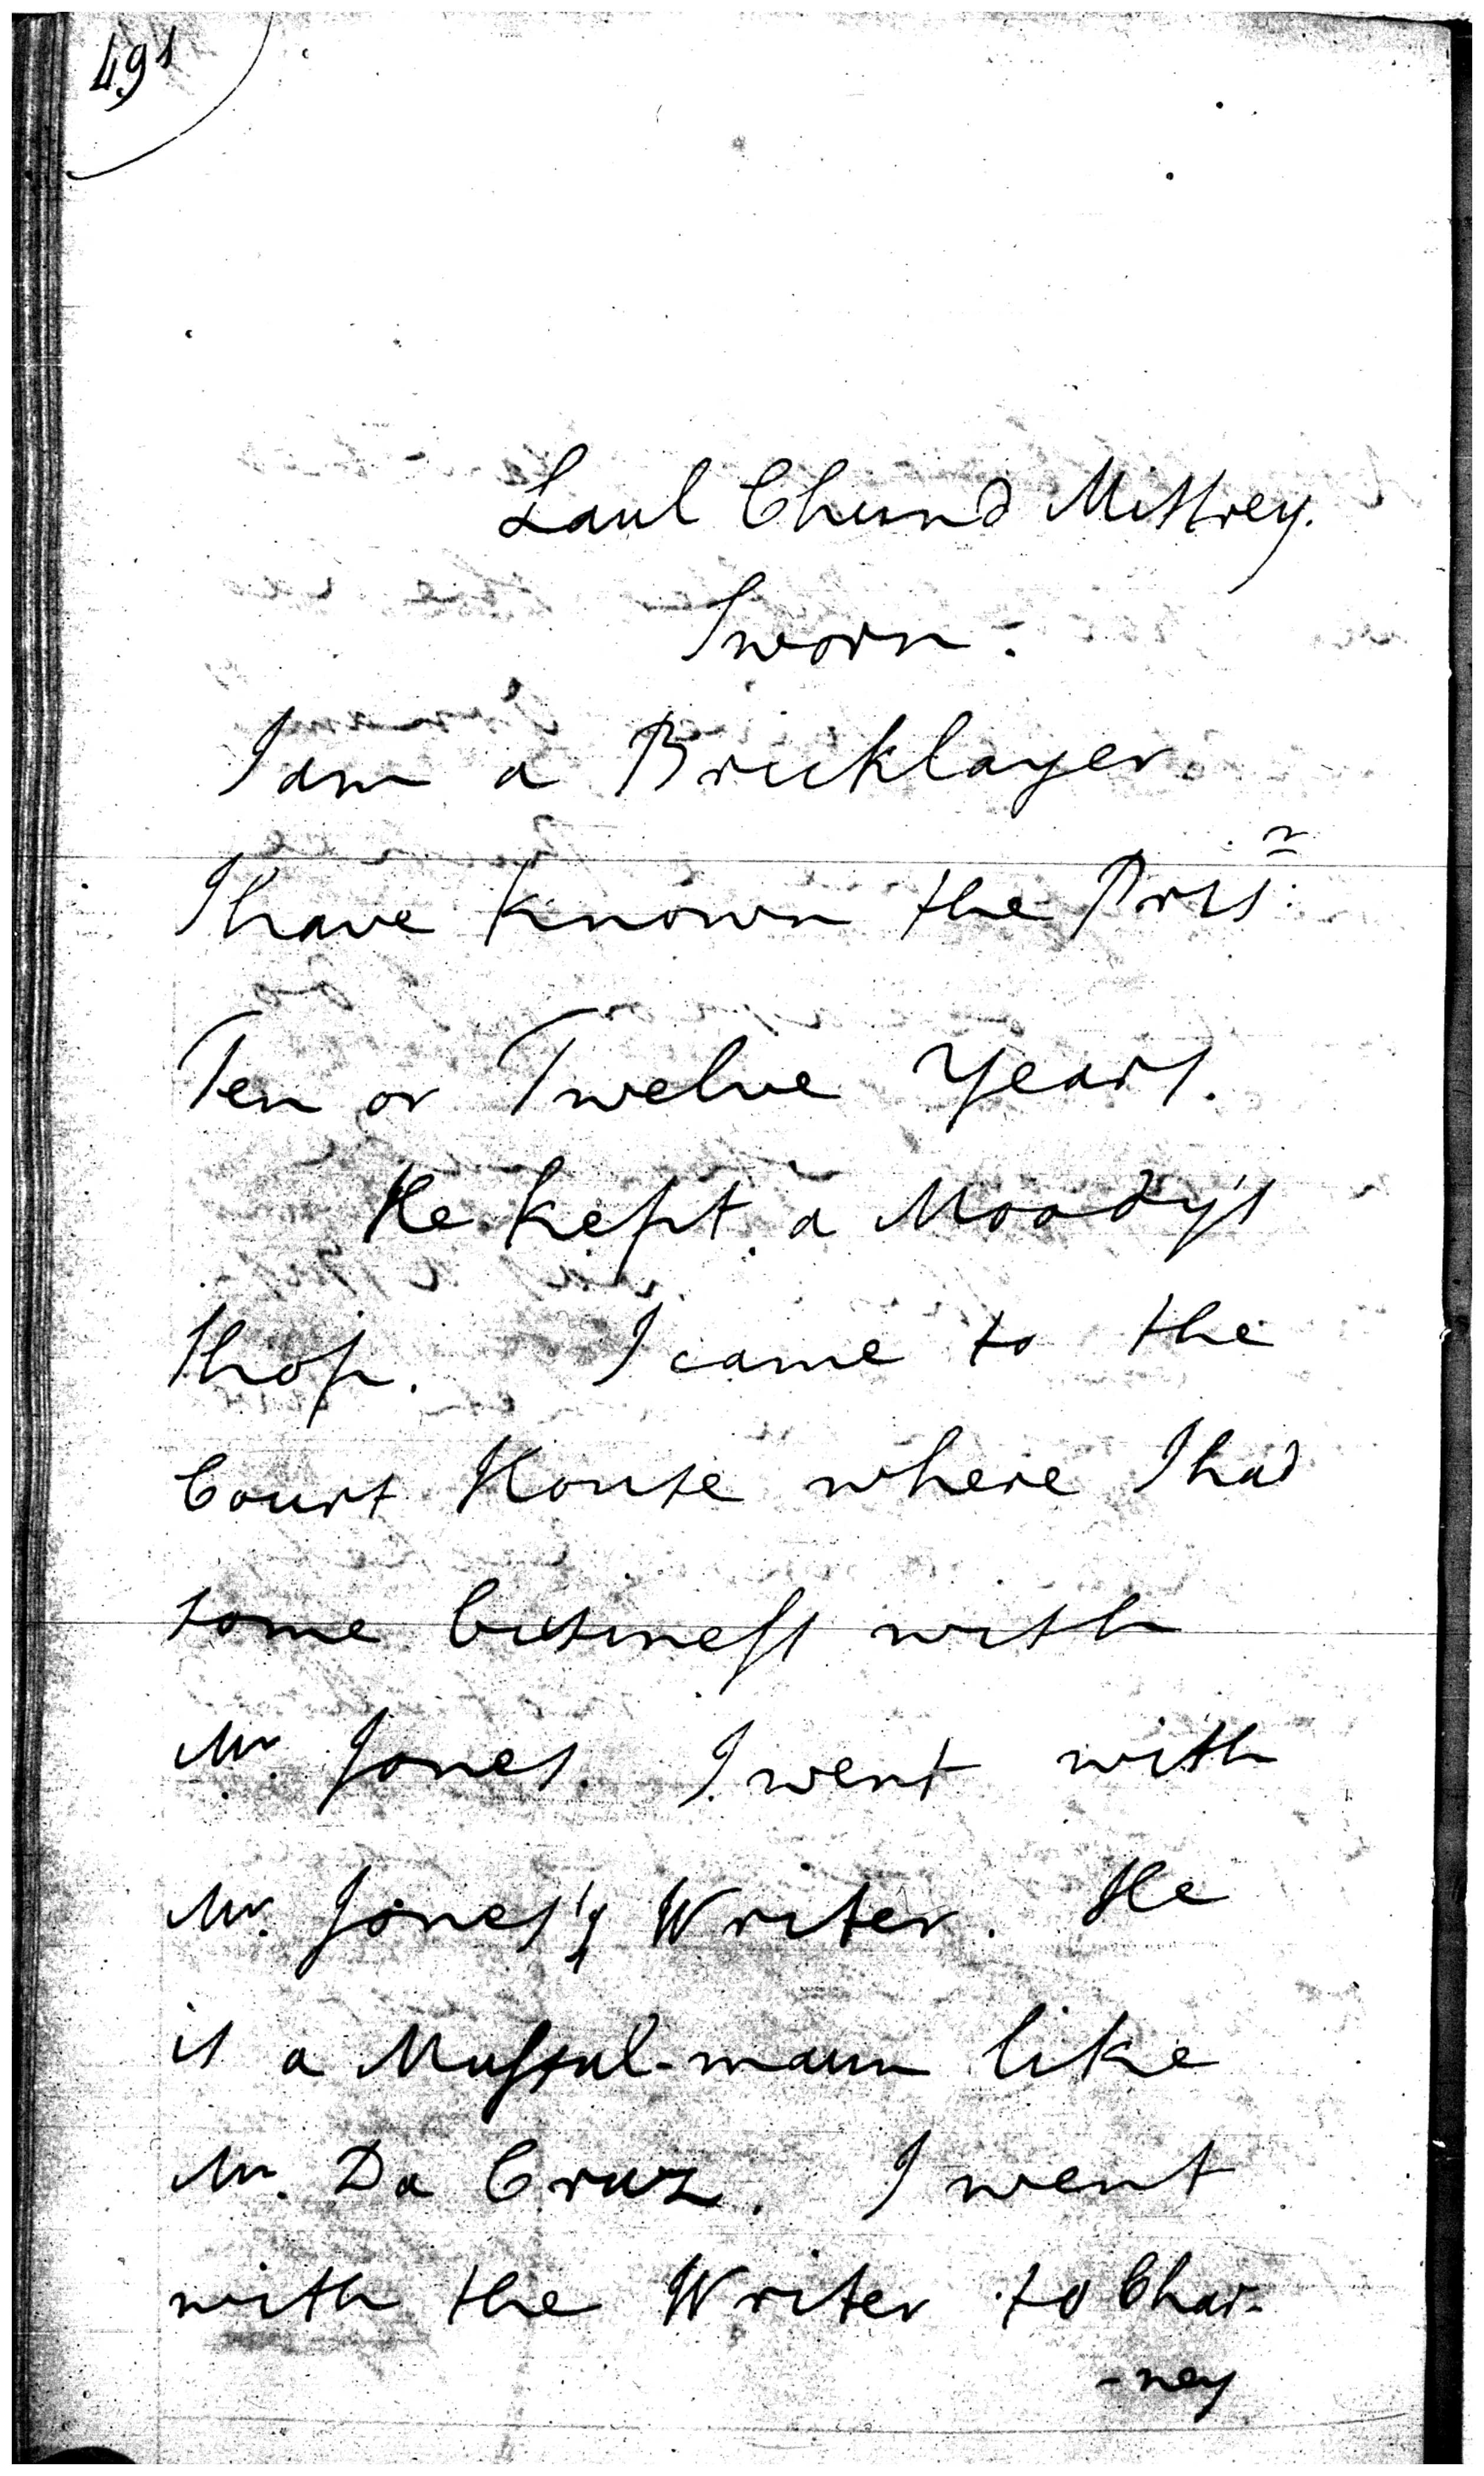 491
Laul Chund Mistrey.
Sworn.
I am a Bricklayer.
I have known the Prisr.
Ten or Twelve Years.
He kept a Moody's
shop. I came to the
Court House where I had
some business with
Mr. Jones. I went with
Mr. Jones's Writer. He
is a Mussul-maun like
Mr. Da Cruz. I went
with the Writer to Char-
-ney